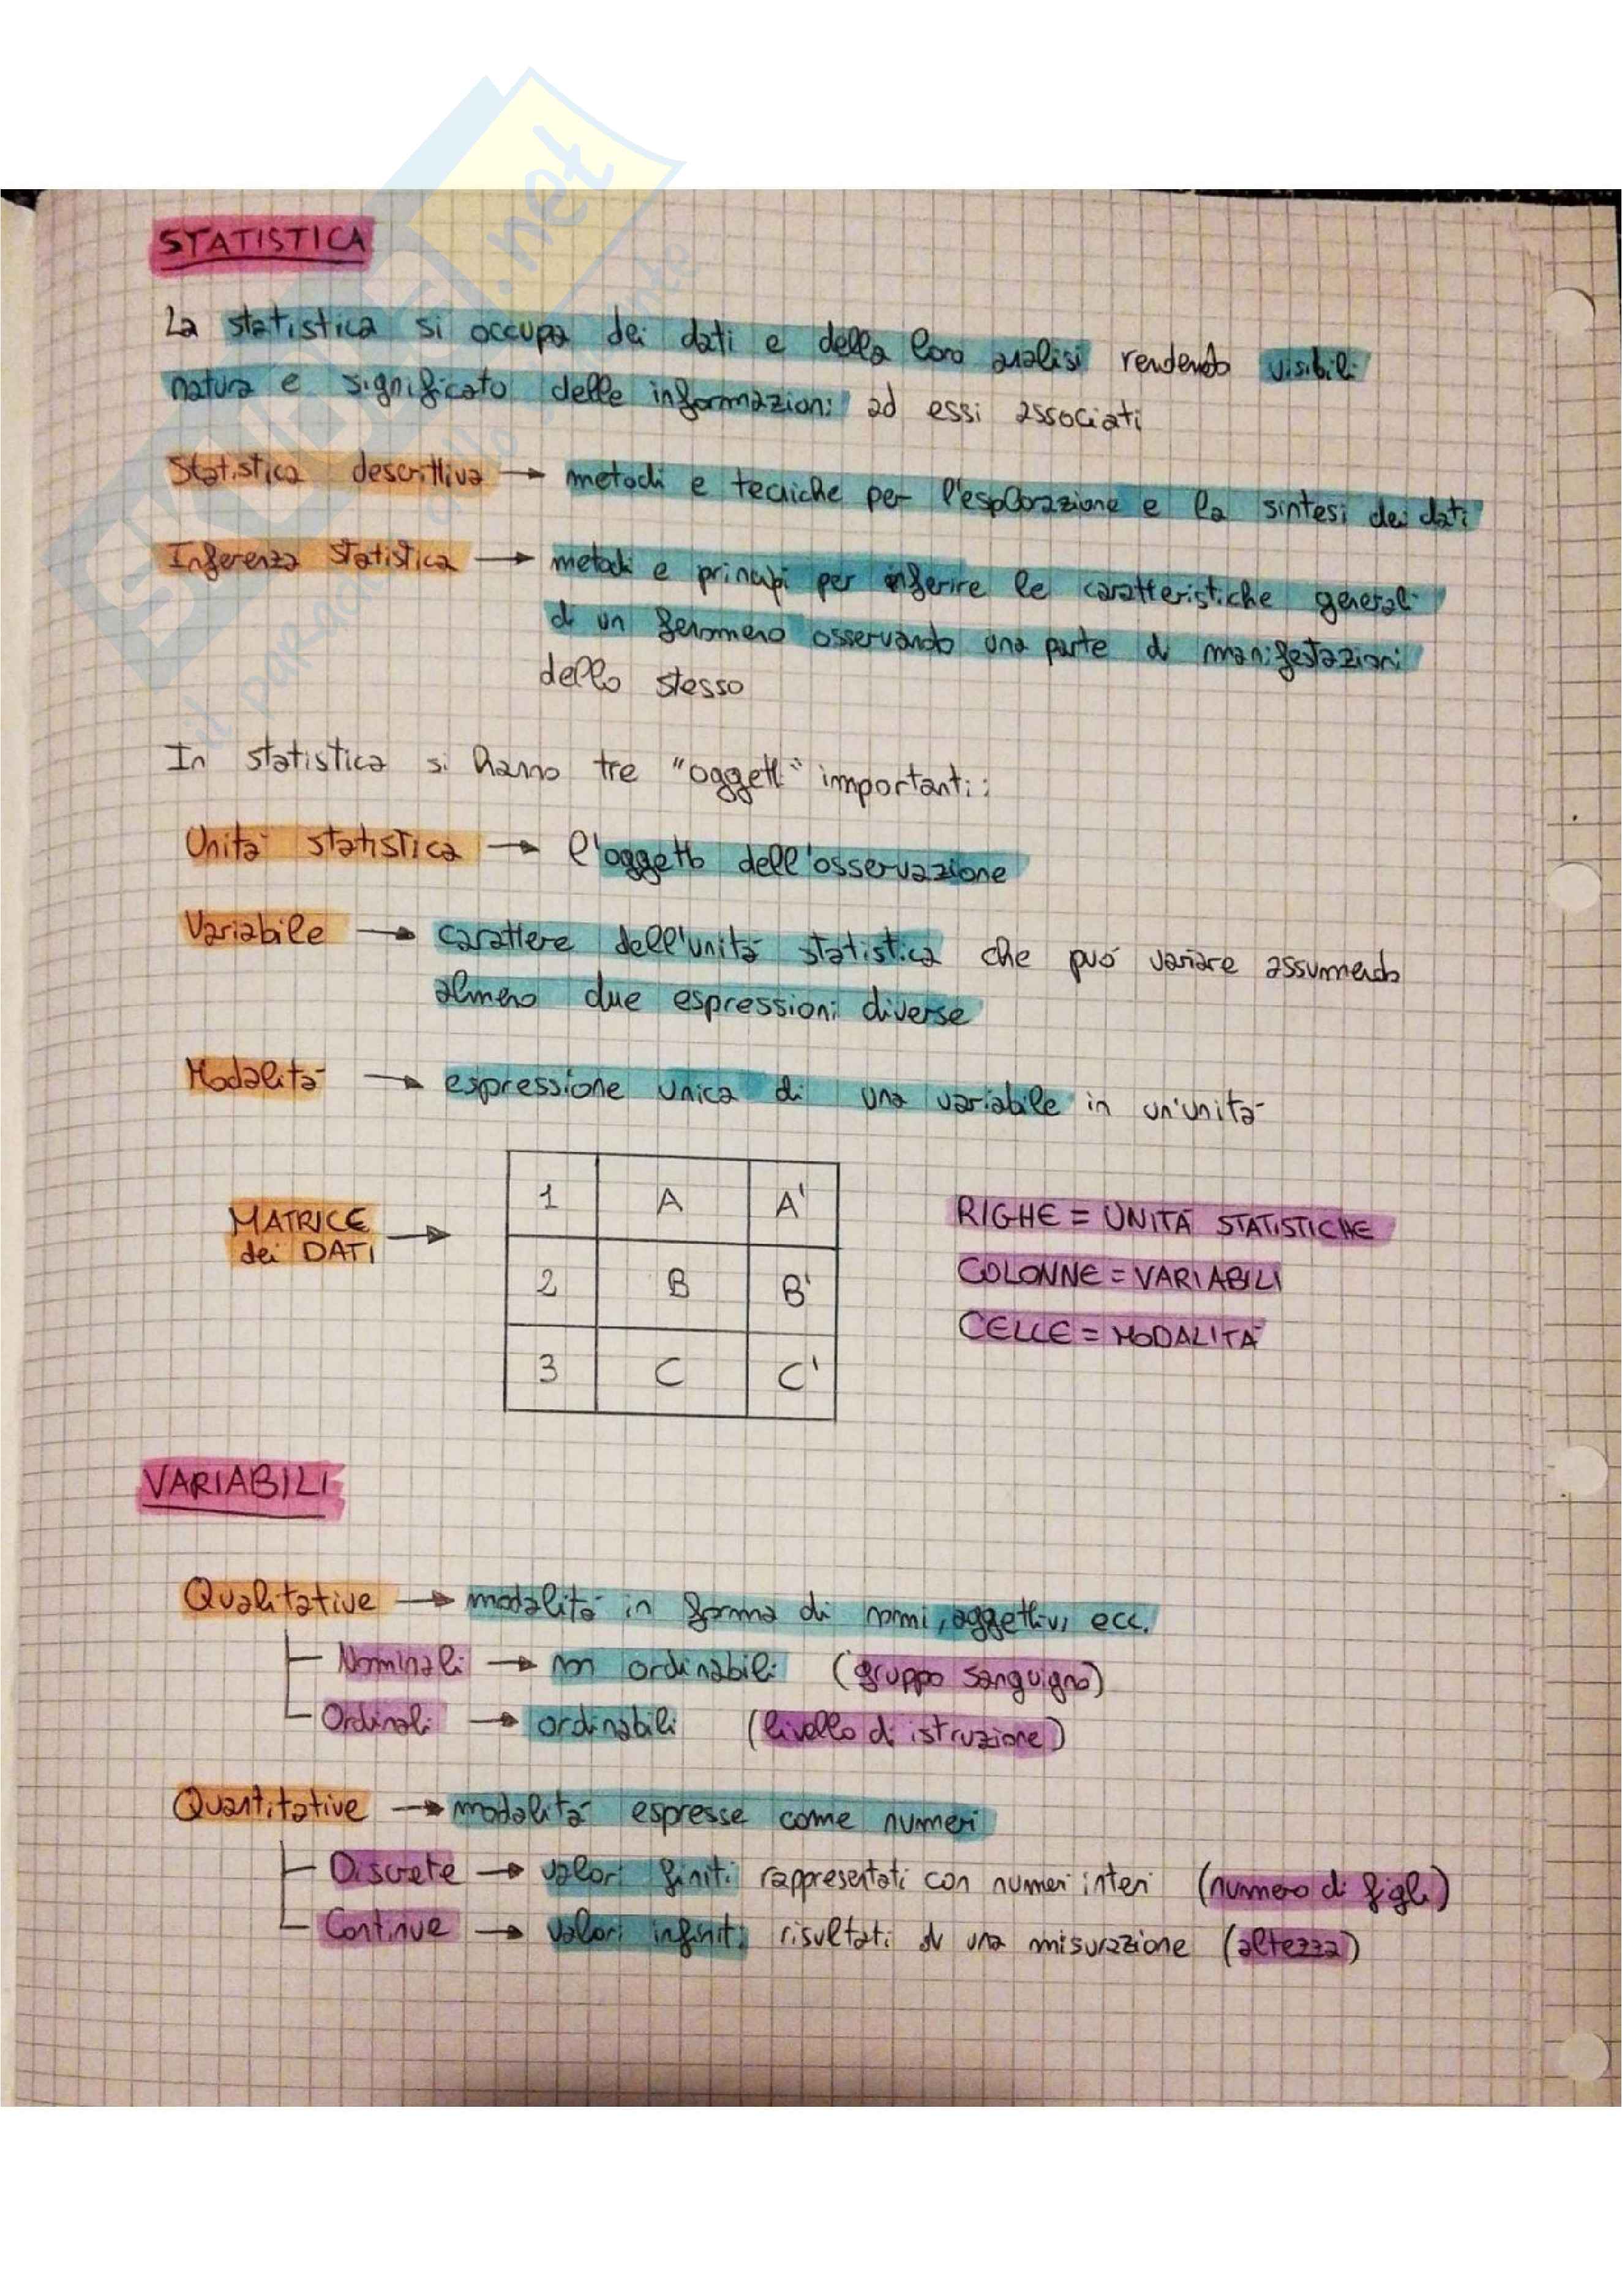 STATISTICA
La statistica si occupa dei dati e della loro analisi rendendo visibili
natura e significato delle informazioni ad essi associati
Statistica descrittiva → metodi e tecniche per l'esplorazione e la sintesi dei dati
Inferenza statistica → metodi e principi per inferire le caratteristiche generali
di un fenomeno osservando una parte di manifestazioni
dello stesso
In statistica si hanno tre "oggetti" importanti:
Unità statistica → l'oggetto dell'osservazione
Variabile → carattere dell'unità statistica che può variare assumendo
almeno due espressioni diverse
Modalità → espressione unica di una variabile in un'unità
MATRICE
dei DATI →
1 A A'
2 B B'
3 C C'
RIGHE = UNITÀ STATISTICHE
COLONNE = VARIABILI
CELLE = MODALITÀ
VARIABILI
Qualitative → modalità in forma di nomi, aggettivi ecc.
Nominali → non ordinabili (gruppo sanguigno)
Ordinali → ordinabili (livello di istruzione)
Quantitative → modalità espresse come numeri
Discrete → valori finiti rappresentati con numeri interi (numero di figli)
Continue → valori infiniti risultati di una misurazione (altezza)